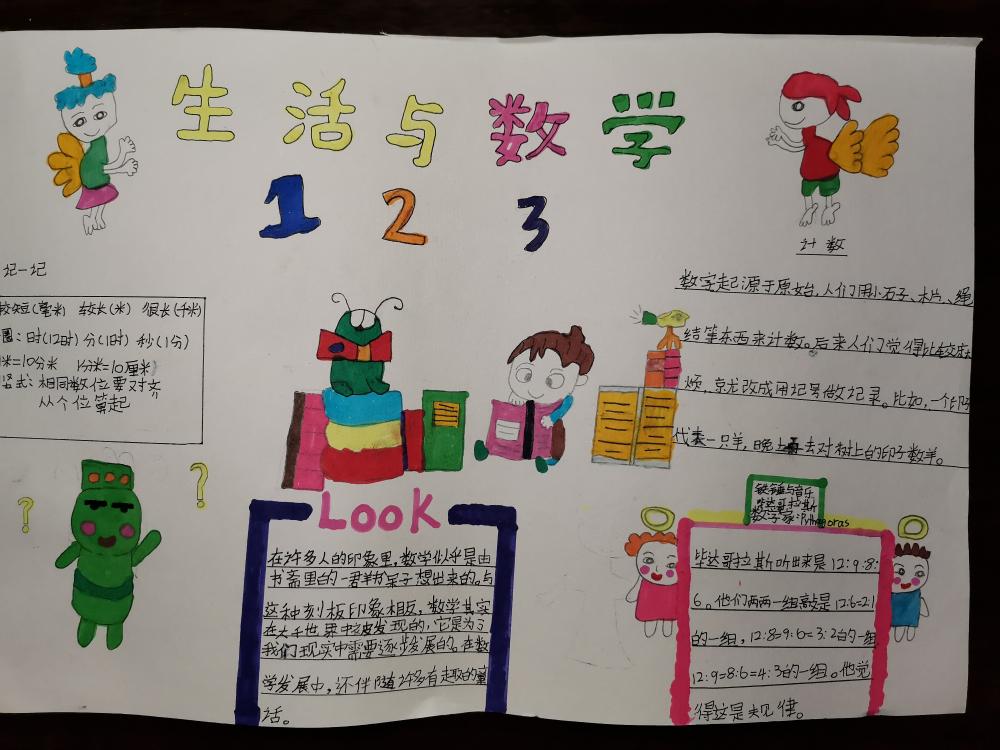 生活与数学
1 2 3
记一记
较短(毫米) 较长(米) 很长(千米)
圈:时(12时)分(1时)秒(1分)
米=10分米 1分米=10厘米
竖式:相同数位要对齐
从个位算起
?
?
计数
数字起源于原始,人们用小石子、木片、绳
结等东西来计数。后来人们觉得比较麻
烦,就尤改成用记号做记录。比如,一个印子
代表一只羊,晚上去对树上的印子数羊。
Look
在许多人的印象里,数学似乎是由
书斋里的一君书呆子想出来的。与
这种刻板印象相反,数学其实
在大千世界中被发现的,它是为了
我们现实中需要逐步发展的。在数
学发展中,还伴随许多有趣的童
话。
铁锤与音乐
毕达哥拉斯
数学家:Pythagoras
毕达哥拉斯听出来是12:9:8:
6。他们两两一组敲是12:6=2:1
的一组,12:8=9:6=3:2的一组
12:9=8:6=4:3的一组。他觉
得这是规律。